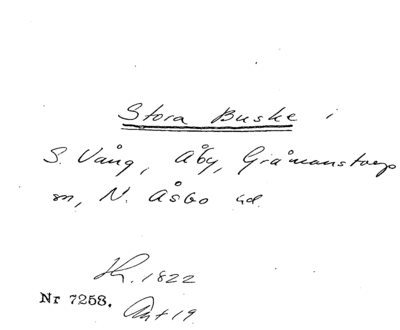 Stora Buske i
S. Vång, Åby, Gråmanstorps
sn, N. Åsbo hd.
Th. 1822
Nr 7258. Ant 19